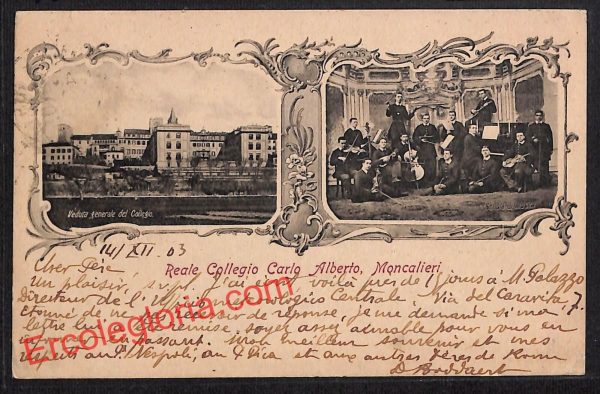 Veduta generale del Collegio.
14/XII 03
Reale Collegio Carlo Alberto, Moncalieri
Cher Père
Un plaisir, s.v.pl. J'ai voilà près de jours à M. Palazzo
Directeur de l' Centrale, Via del Caravita, 7.
étonné de ne de réponse, je me demande si ma
lettre lui remise, soyez assez aimable pour vous en
en passant. meilleur souvenir et mes
au P. Nespoli, au P. Pica et aux autres Pères de Rome
D. Boddaert
Ercolegloria.com